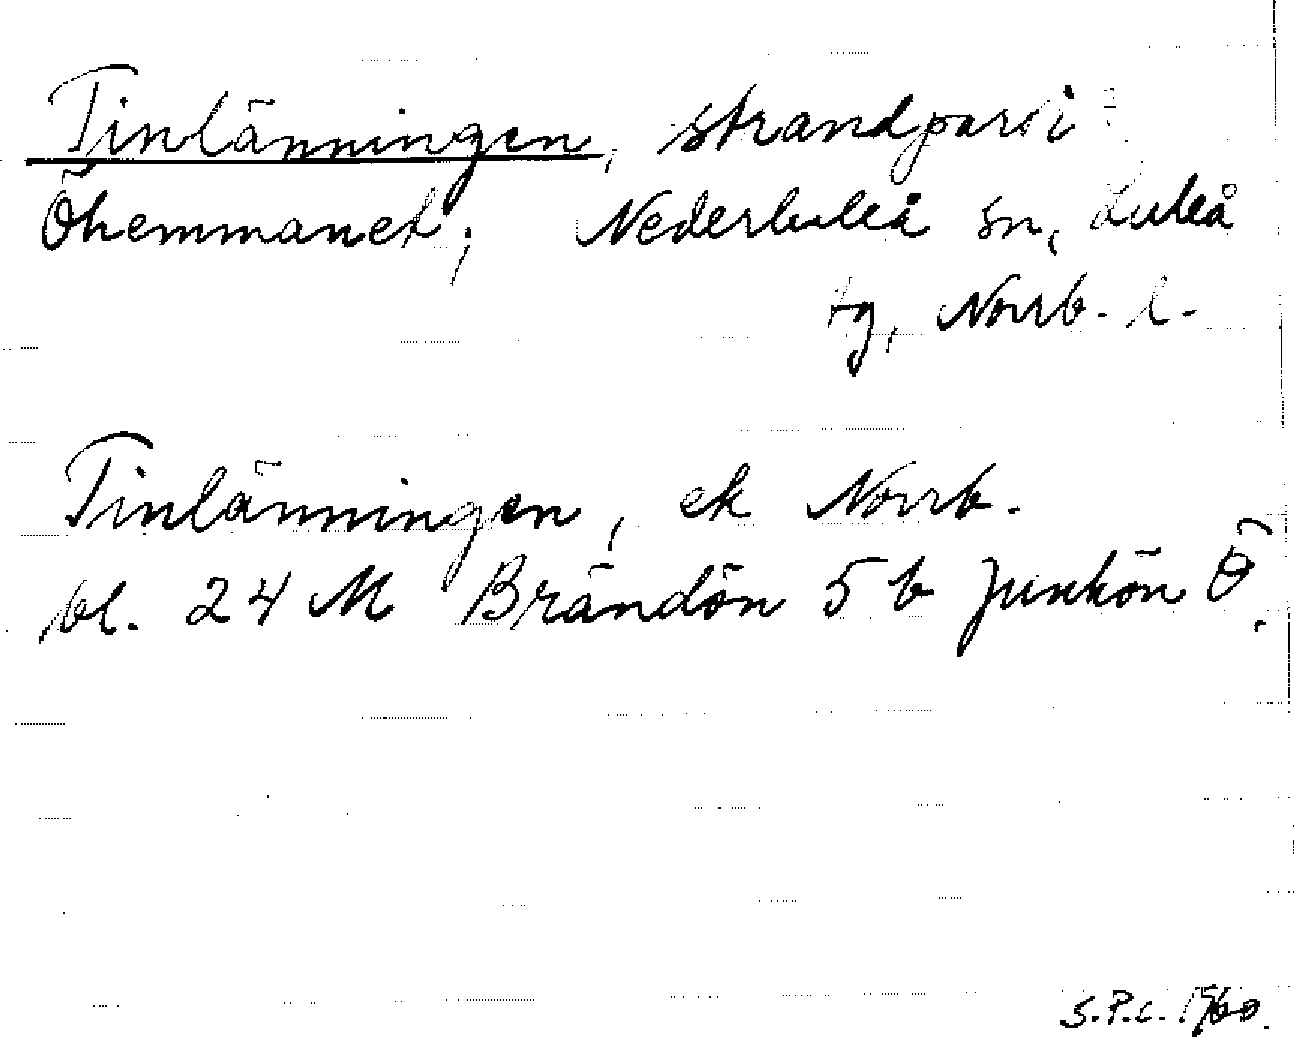 Tinlänningen, strandparti i
Öhemmanet; Nederluleå sn, Luleå
tg, Norrb. l.
Tinlänningen, ek Norrb.
bl. 24 M Brändön 5 b Junkön Ö.
S.P.C. 1960.